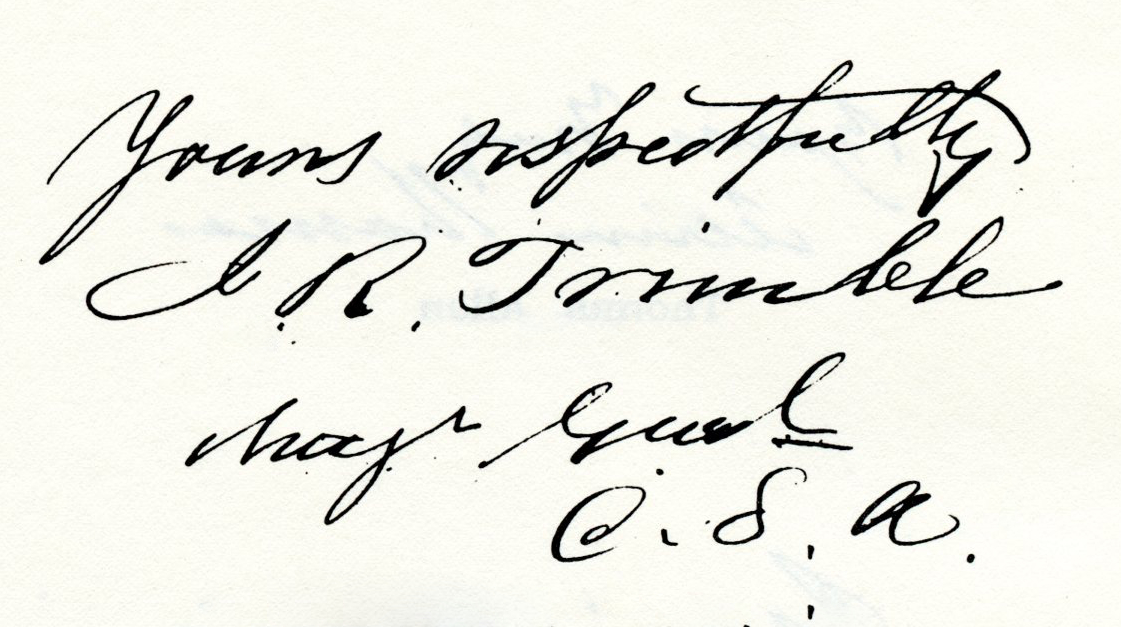 Yours respectfully
I. R. Trimble
Majr Genl
C. S. A.